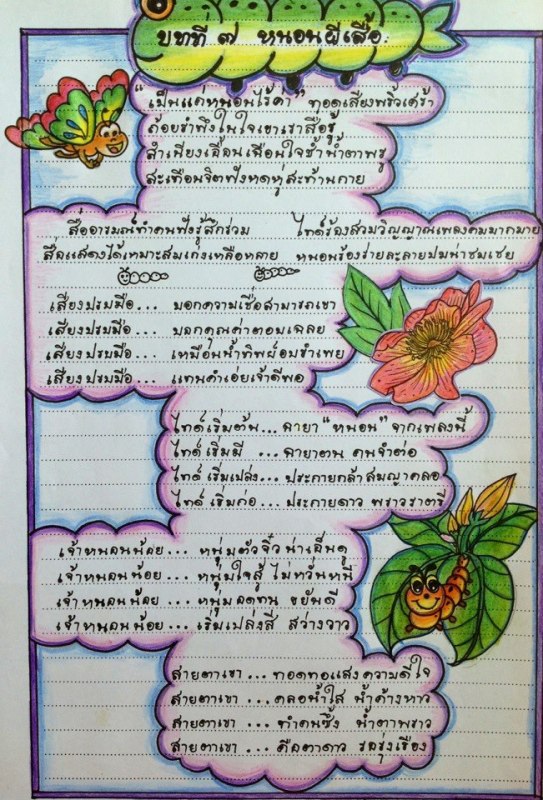 บทที่ ๗ หนอนผีเสื้อ
"เป็นแค่หนอนไร้ค่า" ทอดเสียงพริ้วเศร้า
ถ้อยรำพึงในใจเขาเราสื่อรู้
สำเนียงเอื้อนเฉือนใจช้ำน้ำตาพรู
สะเทือนจิตฟังหดหู่สะท้านกาย
สื่ออารมณ์ทำคนฟังรู้สึกร่วม ไทด์ร้องสวมวิญญาณเพลงคมมากมาย
สื่อแสดงได้เหมาะสมเก่งเหลือหลาย หนอนร้องร่ายละลายปมน่าชมเชย
เสียงปรบมือ... บอกความเชื่อสามารถเขา
เสียงปรบมือ... บอกคุณค่าตอบเฉลย
เสียงปรบมือ... เหมือนน้ำทิพย์อบรำเพย
เสียงปรบมือ... แทนคำเอ่ยเจ้าดีพอ
ไทด์เริ่มต้น... ฉายา "หนอน" จากเพลงนี้
ไทด์เริ่มมี ... ฉายาตน คนจำต่อ
ไทด์เริ่มเปล่ง... ประกายกล้าสมญาคลอ
ไทด์เริ่มก่อ ... ประกายดาว พราวราตรี
เจ้าหนอนน้อย ... หนุ่มตัวจิ๋ว น่าเอ็นดู
เจ้าหนอนน้อย ... หนุ่มใจสู้ ไม่หวั่นหนี
เจ้าหนอนน้อย ... หนุ่มอดทน ขยันดี
เจ้าหนอนน้อย ... เริ่มเปล่งสี สว่างวาว
สายตาเขา ... ทอดทอแสง ความดีใจ
สายตาเขา ... คลอน้ำใส น้ำค้างหาว
สายตาเขา ... ทำคนซึ้ง น้ำตาพราว
สายตาเขา ... คือตาดาว รอรุ่งเรือง